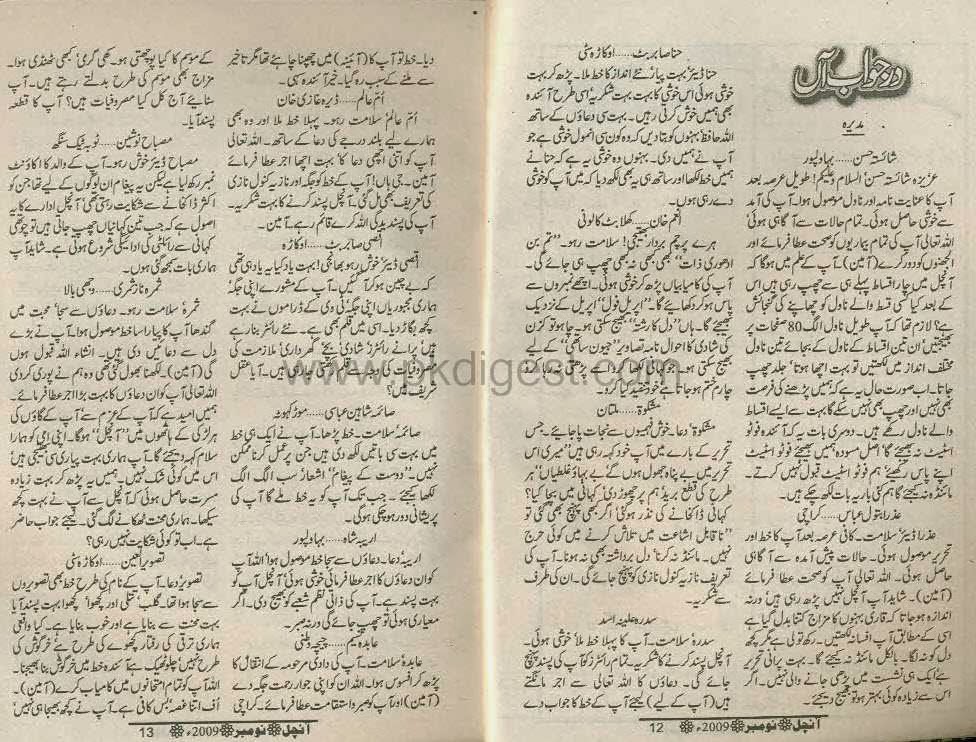 در جواب آں
مدیرہ
شائستہ حسن......بہاولپور
عزیزہ شائستہ حسن! السلام وعلیکم! طویل عرصہ بعد
آپ کا عنایت نامہ اور ناول موصول ہوا۔ آپ کی آمد
سے خوشی حاصل ہوئی۔ تمام حالات سے آگاہی ہوئی
اللہ تعالیٰ آپ کی تمام بیماریوں کو صحت عطا فرمائے اور
الجھنوں کو دور کرے (آمین)۔ آپ کے علم میں ہوگا کہ
آنچل میں چار اقساط پہلے ہی سے چھپ رہی ہیں اس
کے بعد کیا کسی قسط والے ناول کو چھاپنے کی گنجائش
ہے؟ لازم تھا کہ آپ طویل ناول الگ 80 صفحات پر
بھیجتیں' ان تین اقساط کے ناول کے بجائے تین ناول
مختلف انداز میں لکھتیں تو بہت اچھا ہوتا' جلد چھپ
جاتا۔ اب صورت حال یہ ہے ہمیں پڑھنے کی فرصت
بھی نہیں اور چھپ بھی نہیں سکے گا بہت سے ایسے اقساط
والے ناول رکھے ہیں۔ دوسری بات یہ کہ آئندہ فوٹو
اسٹیٹ نہ بھیجئے گا' اصل مسودہ ہمیں بھیجئے فوٹو اسٹیٹ
اپنے پاس رکھئے' ہم فوٹو اسٹیٹ قبول نہیں کرتے۔
مائنڈ نہ کیجئے گا ہم کئی بار یہ بات لکھ چکے ہیں۔
عذرا بتول عباس......کراچی
عذرا ڈیئر' سلامت۔ کافی عرصہ بعد آپ کا خط اور
تحریر موصول ہوئی۔ حالات پیش آمدہ سے آگاہی
حاصل ہوئی۔ اللہ تعالیٰ آپ کو صحت عطا فرمائے
(آمین)۔ شاید آپ آنچل نہیں پڑھ رہی ہیں' ورنہ
اندازہ ہوجاتا کہ قاری بہنوں کا مزاج کتنا بدل گیا ہے
اسی کے مطابق آپ افسانہ لکھتیں۔ رکھ تو لی ہے مگر کچھ
دل کو نہ لگا۔ بالکل مائنڈ نہ کیجئے گا۔ بہت پرانی تحریر
ہے ایک ہی نشست میں پڑھی جانے والی نہیں۔ اگر
اس سے زیادہ کوئی بہتر ہو تو بھیج دیجئے۔
حنا صابر بٹ......اوکاڑہ سٹی
حنا ڈیئر' بہت پیار نئے انداز کا خط ملا۔ پڑھ کر بہت
خوشی ہوئی اس خوشی کا بہت بہت شکریہ' اسی طرح آئندہ
بھی ہمیں خوش کرتی رہیں۔ بہت سی دعاؤں کے ساتھ
اللہ حافظ' بہنوں کو بتا دیں کہ وہ کون سی انمول خوشی ہے جو
آپ نے ہمیں دی۔ بہنوں وہ خوشی یہ ہے کہ حنا نے
ہمیں خط لکھا اور ساتھ ہی یہ بھی لکھ دیا کہ میں آپ کو خوشی
دے رہی ہوں۔
انعم خان......کھلابٹ کالونی
ہرے پرچم بردار بھتیجی! سلامت رہو۔ "تم بن
ادھوری ذات" ابھی بھی نہ بھی چھپ ہی جائے گی۔
آپ کی کامیابیاں پڑھ کر خوشی ہوئی۔ اچھے نمبروں سے
پاس ہو کر دکھایئے گا۔ "اپریل فول" اپریل کے نزدیک
بھیجئے گا۔ ہاں "دل کا رشتہ" بھیج سکتی ہو۔ چاہو تو کزن
کی شادی کا احوال نامہ تصاویر "جیون ساتھی" کے لیے
بھیج سکتی ہو۔ جو کہانی لکھا کرو اسے پڑھتی رہا کرو۔
چارم ختم ہوجاتا ہے خود تنقید کیا کرو۔
مشکوٰۃ......ملتان
مشکوٰۃ' دعا۔ خوش فہمیوں سے نجات پا جایئے۔ جس
تحریر کے بارے میں آپ خود کہہ رہی ہیں "میری اس
تحریر میں بے پناہ جھول ہوں گے' بے بہاؤ غلطیاں' ہر
طرح کی قطع برید ہم پر چھوڑ دی' کہانی میں بچا کیا؟
کہانی ڈاکخانے کی نذر ہوگئی' اگر بھی پہنچ بھی گئی تو
"ناقابل اشاعت میں تلاش کرنے میں کوئی حرج
نہیں۔ مائنڈ نہ کرنا' دل برداشتہ بھی نہ ہونا۔ آپ کی
تعریف نازیہ کنول نازی کو پہنچ جائے گی۔ ان کی طرف
سے شکریہ۔
سدرہ علینہ اسد
سدرہ' سلامت۔ آپ کا پہلا خط ملا' خوشی ہوئی۔
آنچل پسند کرنے کا شکریہ۔ تمام رائٹرز کو آپ کی پسند پہنچ
جائے گی۔ دعاؤں کا اللہ تعالیٰ سے اجر مانگتے
ہیں (آپ کے لیے) لیجئے آپ کے خط کا جواب دے
12 آنچل نومبر 2009ء
دیا۔ خط تو آپ کا (آئینہ) میں چھپنا چاہئے تھا مگر تاخیر
سے ملنے کے سبب رہ گیا۔ خیر آئندہ سہی۔
ام عالم......ڈیرہ غازی خان
ام عالم' سلامت رہو۔ پہلا خط ملا اور وہ بھی
ہمارے لیے بلند درجے کی دعا کے ساتھ۔ اللہ تعالیٰ
آپ کو اتنی اچھی دعا کا' بہت اچھا اجر عطا فرمائے
آمین۔ جی ہاں! آپ کے خط کو جگہ اور نازیہ کنول نازی
کی تعریف بھی مل گئی۔ آنچل پسند کرنے کا بہت شکریہ۔
آپ کی پسندیدگی اللہ کرے قائم رہے۔ آمین۔
اقصیٰ صابر بٹ......اوکاڑہ
اقصیٰ ڈیئر' خوش رہو بھانجی! بہت یاد کیا یہ یاد ہی تھی
کہ بے چین ہو کر آ گئیں۔ آپ کے مشورے اپنی جگہ'
ہماری مجبوریاں اپنی جگہ' ٹی وی کے ڈراموں نے بہت
کچھ بگاڑ دیا۔ اسی میں قلم بھی ہے۔ نئے رائٹر بنا رہے
ہیں' پرانے رائٹرز' شادی' بچے' گھرداری' ملازمت کی
مصروفیات کی وجہ سے قلم چھوڑتی جا رہی ہیں۔ آیا عقل
شریف میں؟
صائمہ شاہین عباسی......موڑ کہوٹہ
صائمہ' سلامت۔ خط پڑھا۔ آپ نے ایک ہی خط
میں بہت سی باتیں لکھ دی ہیں جن پر عمل کرنا ممکن
نہیں۔ "دوست کے پیغام" اشعار' سب الگ الگ
لکھا کیجئے۔ جب تک آپ کو یہ خط ملے گا آپ کی
پریشانی دور ہوچکی ہوگی۔
اریبہ شاہ......بہاولپور
اریبہ' دعا۔ دعاؤں سے سجا خط موصول ہوا' اللہ آپ
کو ان دعاؤں کا اجر عطا فرمائی خوشی ہوئی' آنچل آپ کو
بہت پسند ہے۔ آپ کی ذاتی نظم شعبے کو بھیج دی۔ اگر
معیاری ہوئی تو چھپ جائے گی ورنہ صبر۔
عابدہ نسیم......چیچہ وطنی
عابدہ' سلامت۔ آپ کی دادی مرحومہ کے انتقال کا
پڑھ کر افسوس ہوا۔ اللہ ان کو اپنی جوار رحمت جگہ دے
(آمین) اور آپ کو صبر و استقامت عطا فرمائے۔ کراچی
کے موسم کا کیا پوچھتی ہو۔ کبھی گرمی' کبھی ٹھنڈی ہوا۔
مزاج بھی موسم کی طرح بدلتے رہتے ہیں۔ آپ
سنایئے آج کل کیا مصروفیات ہیں؟ آپ کا قطعہ
پسند آیا۔
مصباح نوشین......ٹوبہ ٹیک سنگھ
مصباح ڈیئر' خوش رہو۔ آپ کے والد کا اکاؤنٹ
نمبر رکھ لیا ہے لیکن یہ پیغام ان لوگوں کے لیے تھا جن کو
اکثر ڈاکخانے سے شکایت رہتی تھی' آنچل ادارے کا یہ
اصول ہے کہ جب تین کہانیاں چھپ جاتی ہیں تو چوتھی
کہانی سے رائلٹی کی ادائیگی شروع ہوتی ہے۔ شاید آپ
ہماری بات سمجھ گئی ہوں۔
ثمرہ ناز شمری......وچھی بالا
ثمرہ' سلامت رہو۔ دعاؤں سے سجا' محبت میں
گندھا آپ کا پیارا سا خط موصول ہوا' آپ نے بڑے
دل سے دعائیں دی ہیں۔ انشاء اللہ قبول ہوں
گی (آمین)۔ لکھنا بھول گئی تھی وہ ہم نے پوری کردی
اللہ تعالیٰ آپ کو ان دعاؤں کا بہت بڑا اجر عطا فرمائے۔
ہمیں امید ہے کہ آپ کے عزم سے آپ کے گاؤں کی
ہر لڑکی کے ہاتھوں میں "آنچل" ہوگا۔ اپنی امی کو ہمارا
سلام کہہ دیجئے گا۔ آپ ہماری بہت پیاری سی بھتیجی ہیں
اس میں کوئی شک نہیں۔ ہمیں یہ پڑھ کر بہت زیادہ
مسرت حاصل ہوئی کہ آنچل سے آپ نے بہت کچھ
سیکھا۔ ہماری محنت ٹھکانے لگ گئی۔ لیجئے جواب حاضر
ہے۔ اب تو کوئی شکایت نہیں رہی؟
تصویر العین......اوکاڑہ سٹی
تصویر' دعا۔ آپ کے نام کی طرح خط بھی تصویروں
سے سجا ہوا تھا۔ گلاب' تتلی اور کچھوا' کچھوا بہت پسند آیا
بہت محنت سے بنایا ہے اور خوب بنایا ہے۔ کیا واقعی
ہماری ترقی کی رفتار کچھوے کی طرح ہے' خرگوش کی
طرح نہیں' چلو ٹھیک ہے' آئندہ خط میں خرگوش بنا بھیجنا۔
اللہ آپ کو تمام امتحانوں میں کامیاب کرے (آمین)۔
اُف اتنا غصہ' بس کافی ہے۔ آپ نے کچھ بھیجا ہی نہیں
13 آنچل نومبر 2009ء
www.pkdigest.com